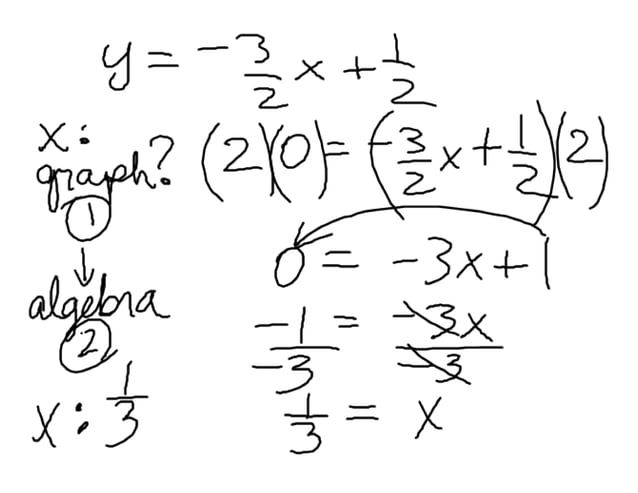 y = -3/2 x + 1/2
x:
graph?
①
↓
algebra
②
x: 1/3
(2)(0) = (-3/2 x + 1/2)(2)
0 = -3x + 1
-1/-3 = -3x/-3
1/3 = x